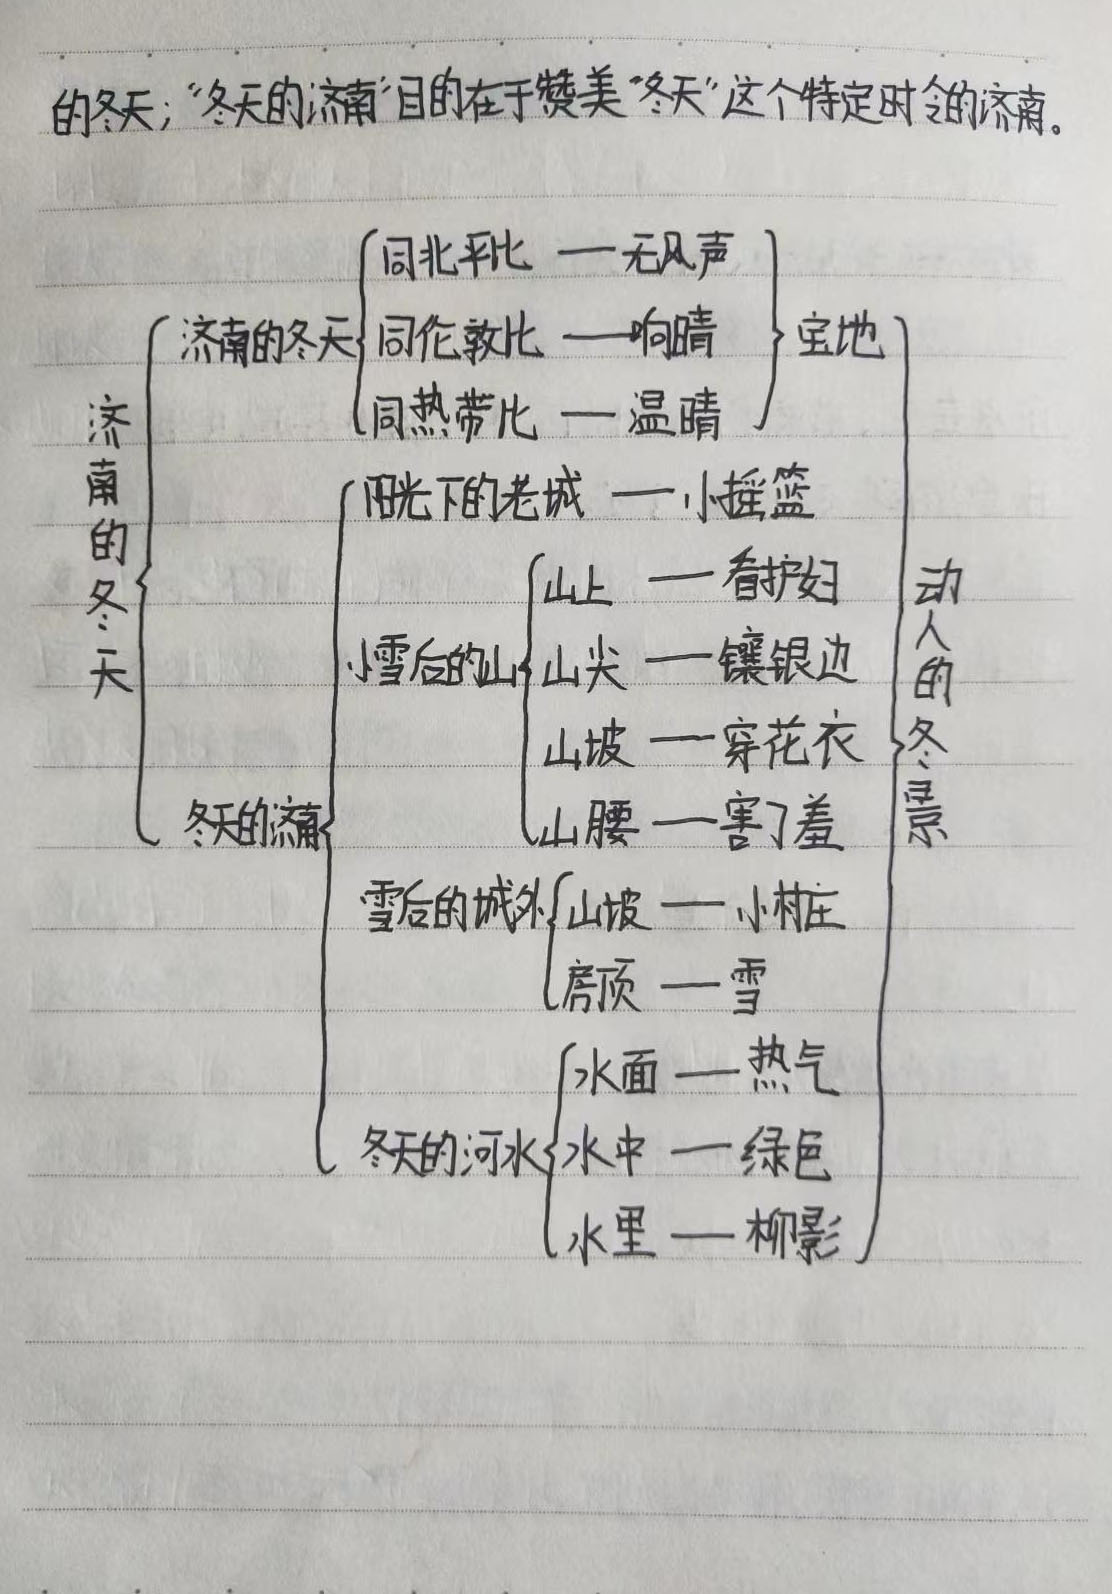 的冬天；“冬天的济南”目的在于赞美“冬天”这个特定时令的济南。
济南的冬天
济南的冬天
同北平比 — 无风声
同伦敦比 — 响晴
同热带比 — 温晴
宝地
冬天的济南
阳光下的老城 — 小摇篮
小雪后的山
山上 — 看护妇
山尖 — 镶银边
山坡 — 穿花衣
山腰 — 害了羞
雪后的城外
山坡 — 小村庄
房顶 — 雪
冬天的河水
水面 — 热气
水中 — 绿色
水里 — 柳影
动人的冬景